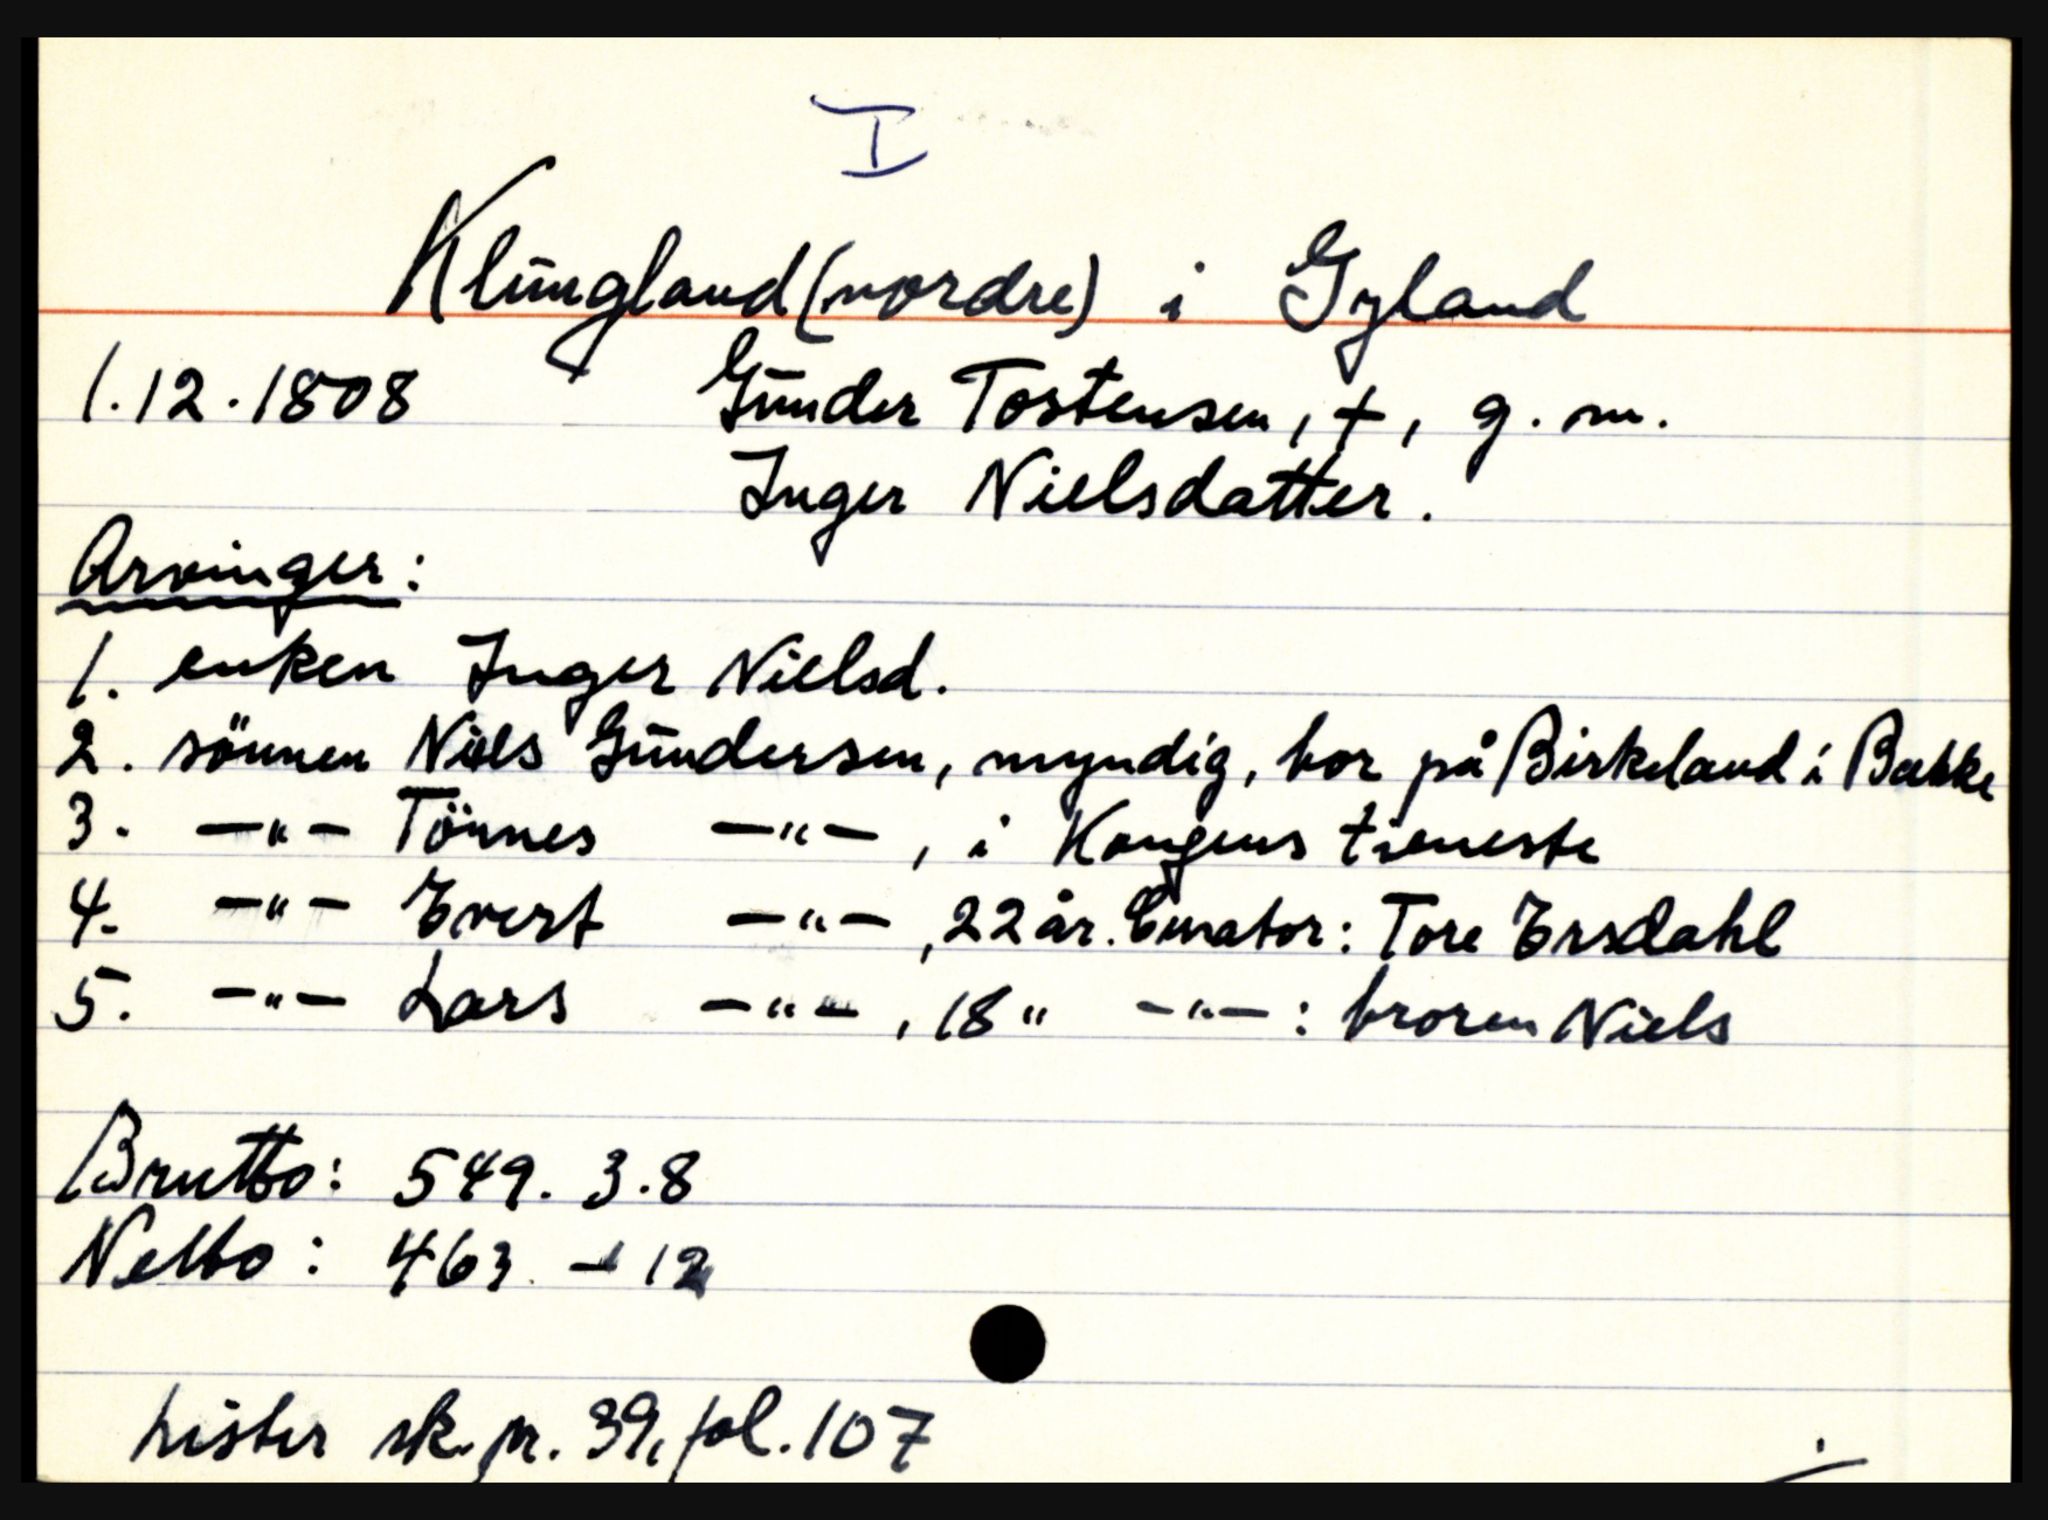 I
Klungland (nordre) i Gyland
1.12.1808 Gunder Tostensen, +, g. m.
Inger Nielsdatter.
Arvinger:
1. enken Inger Nielsd.
2. sönnen Niels Gundersen, myndig, bor på Birkeland i Bakke
3. -"- Tönnes -"-, i Kongens tieneste
4. -"- Evert -"-, 22 år. Curator: Tore Ersdahl
5. -"- Lars -"-, 18 " -"-: broren Niels
Brutto: 549. 3.8
Netto: 463 - 12
Lister sk. pr. 39, fol. 107